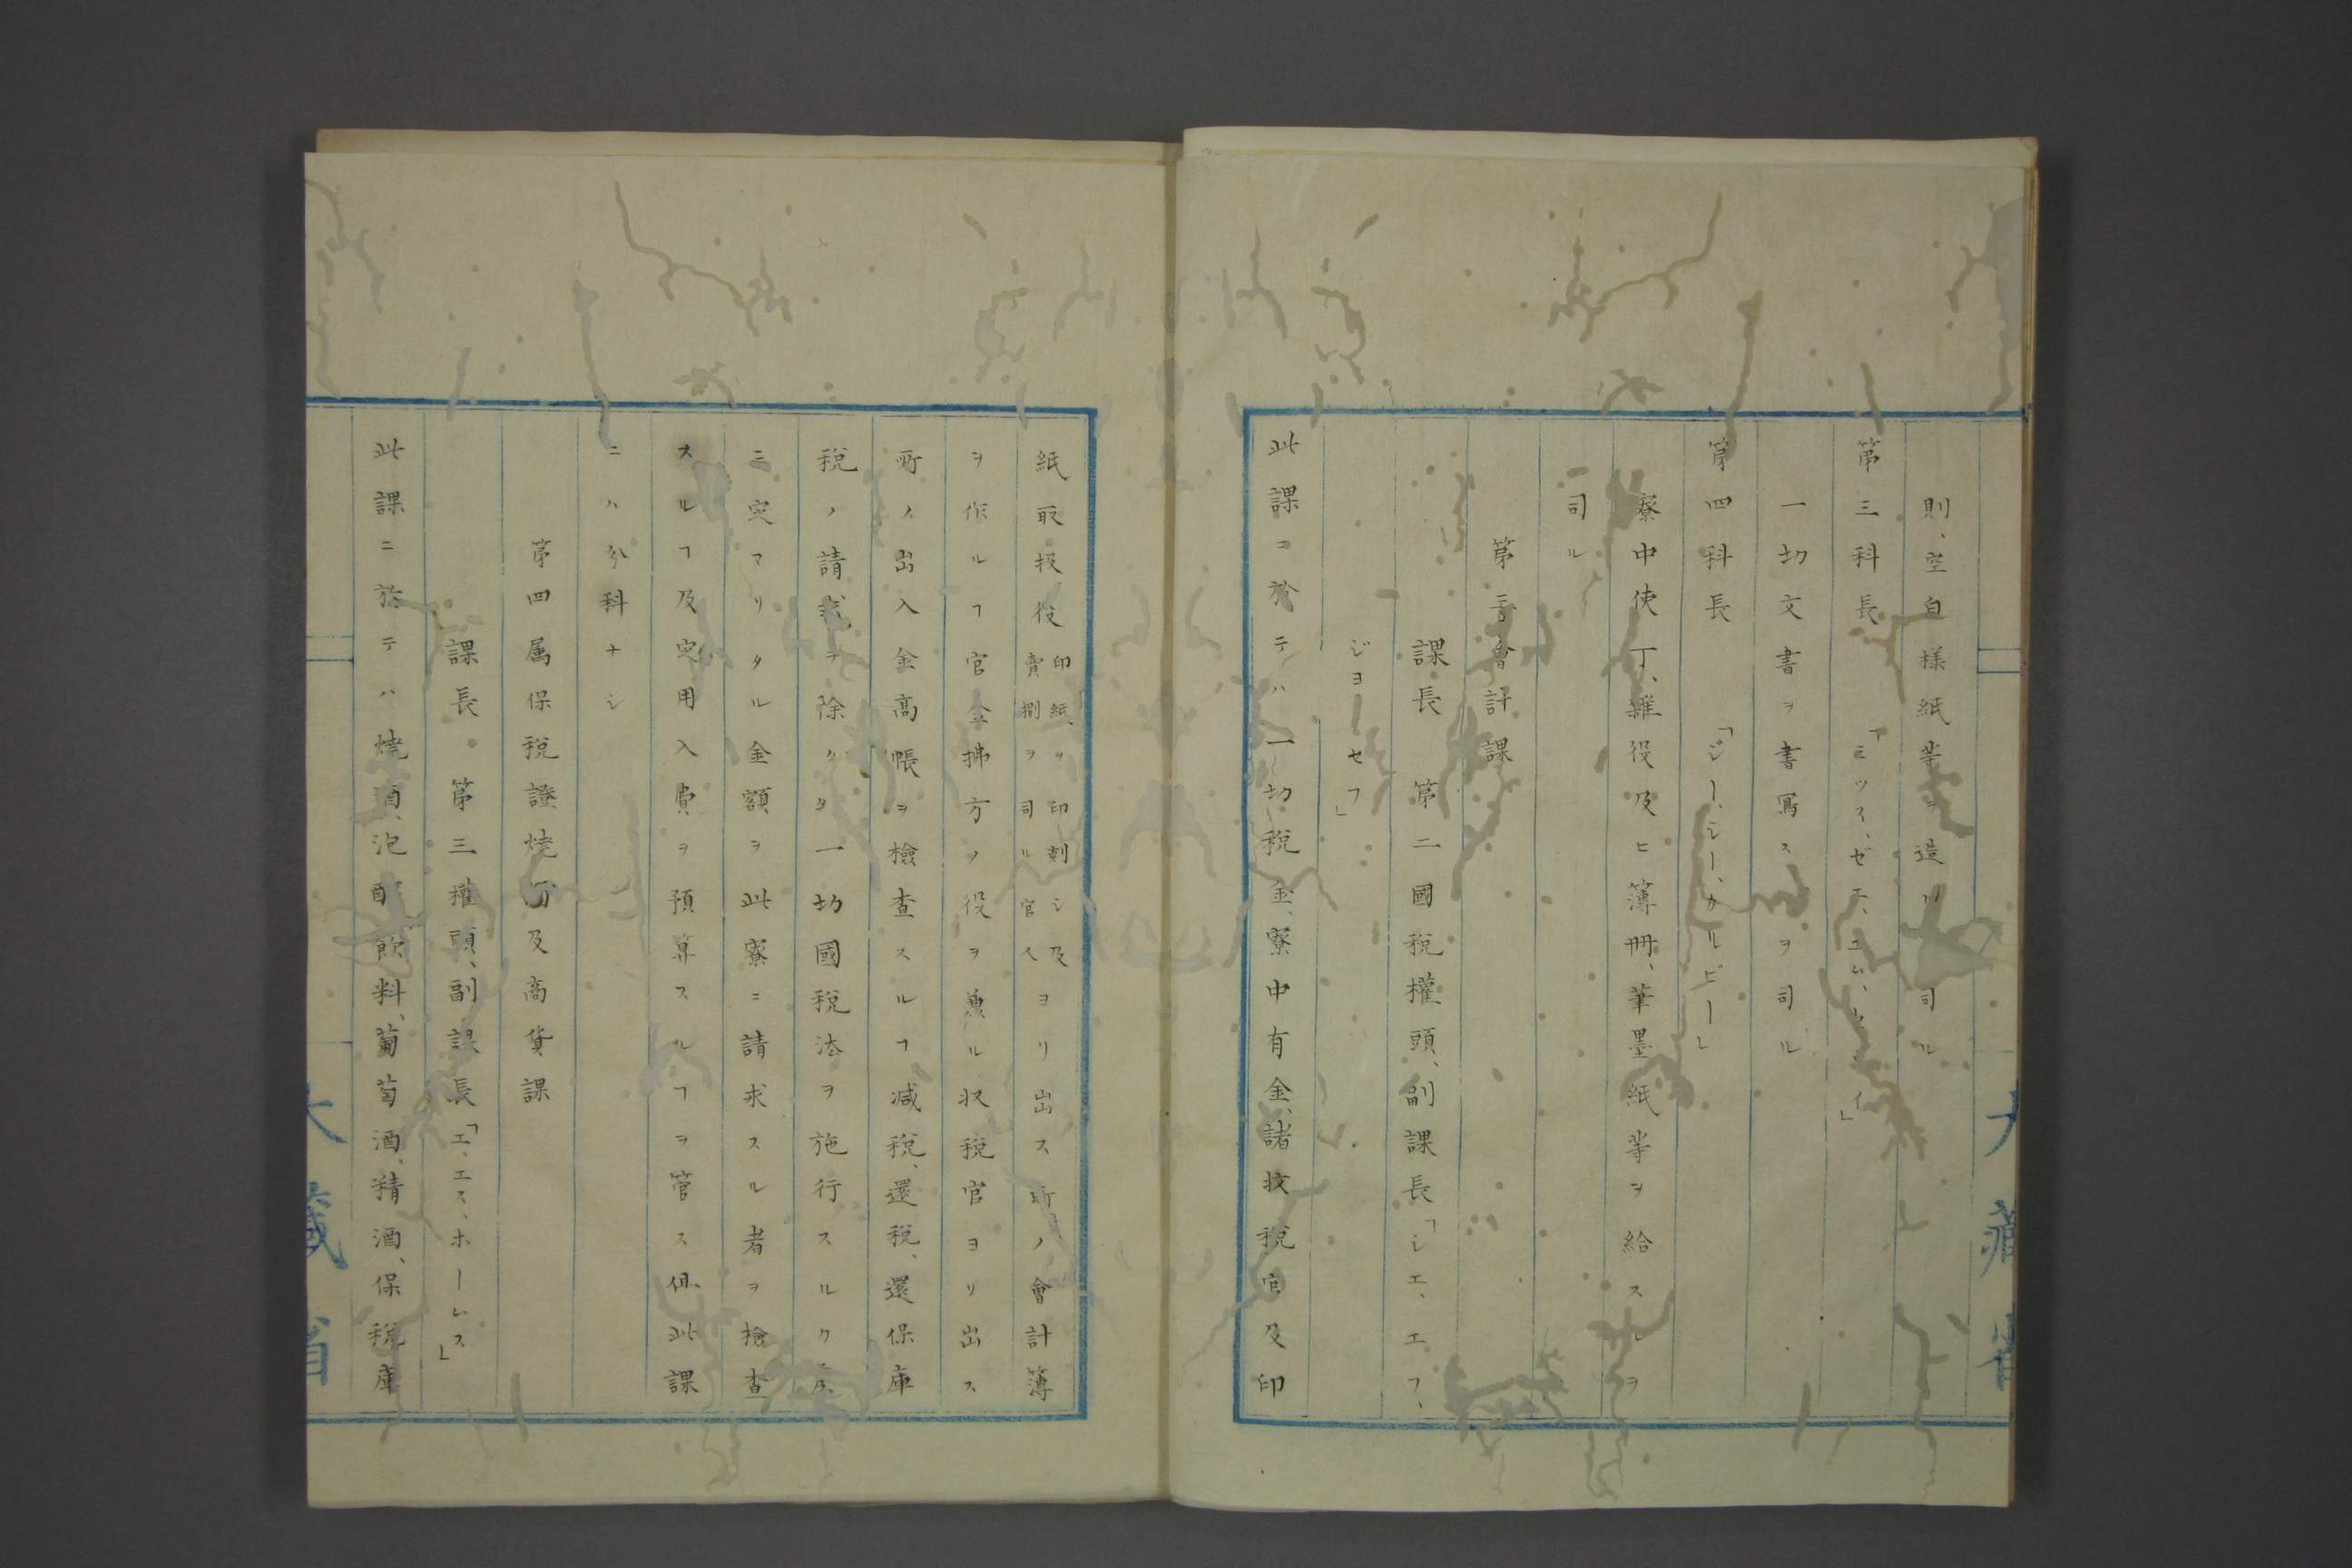 則、空白様紙等ヲ造リ司ル
第三科長　「ミツス、ゼエ、エム、　イ」
一切文書ヲ書写スヲ司ル
第四科長　「ジー、シー、カルピー」
寮中使丁、雜役及ヒ簿冊、筆墨紙等ヲ給スルヲ
司ル
第三會計課
課長　第二國税權頭、副課長「シエ、エフ、
ジヨーセフ」
此課ニ於テハ一切税金、寮中有金、諸收税官及印
紙取扱役印紙ヲ印刻シ及賣捌ヲ司ル官人ヨリ出ス所ノ會計簿
ヲ作ルヿ官金拂方ノ役ヲ兼ル収税官ヨリ出ス
所ノ出入金高帳ヲ檢査スルヿ、減税、還税、還保庫
税ノ請求ヲ除クタ一切國税法ヲ施行スルクノ為
ニ定マリタル金額ヲ此寮ニ請求スル者ヲ檢査
スルヿ及定用入費ヲ預算スルヿヲ管ス但此課
ニハ分科ナシ
第四属保税證焼酒及高貨課
課長　第三權頭、副課長「エ、エス、ホームス」
此課ニ於テハ焼酒、泡酵飲料、葡萄酒、精酒、保税庫
大藏省
大藏省